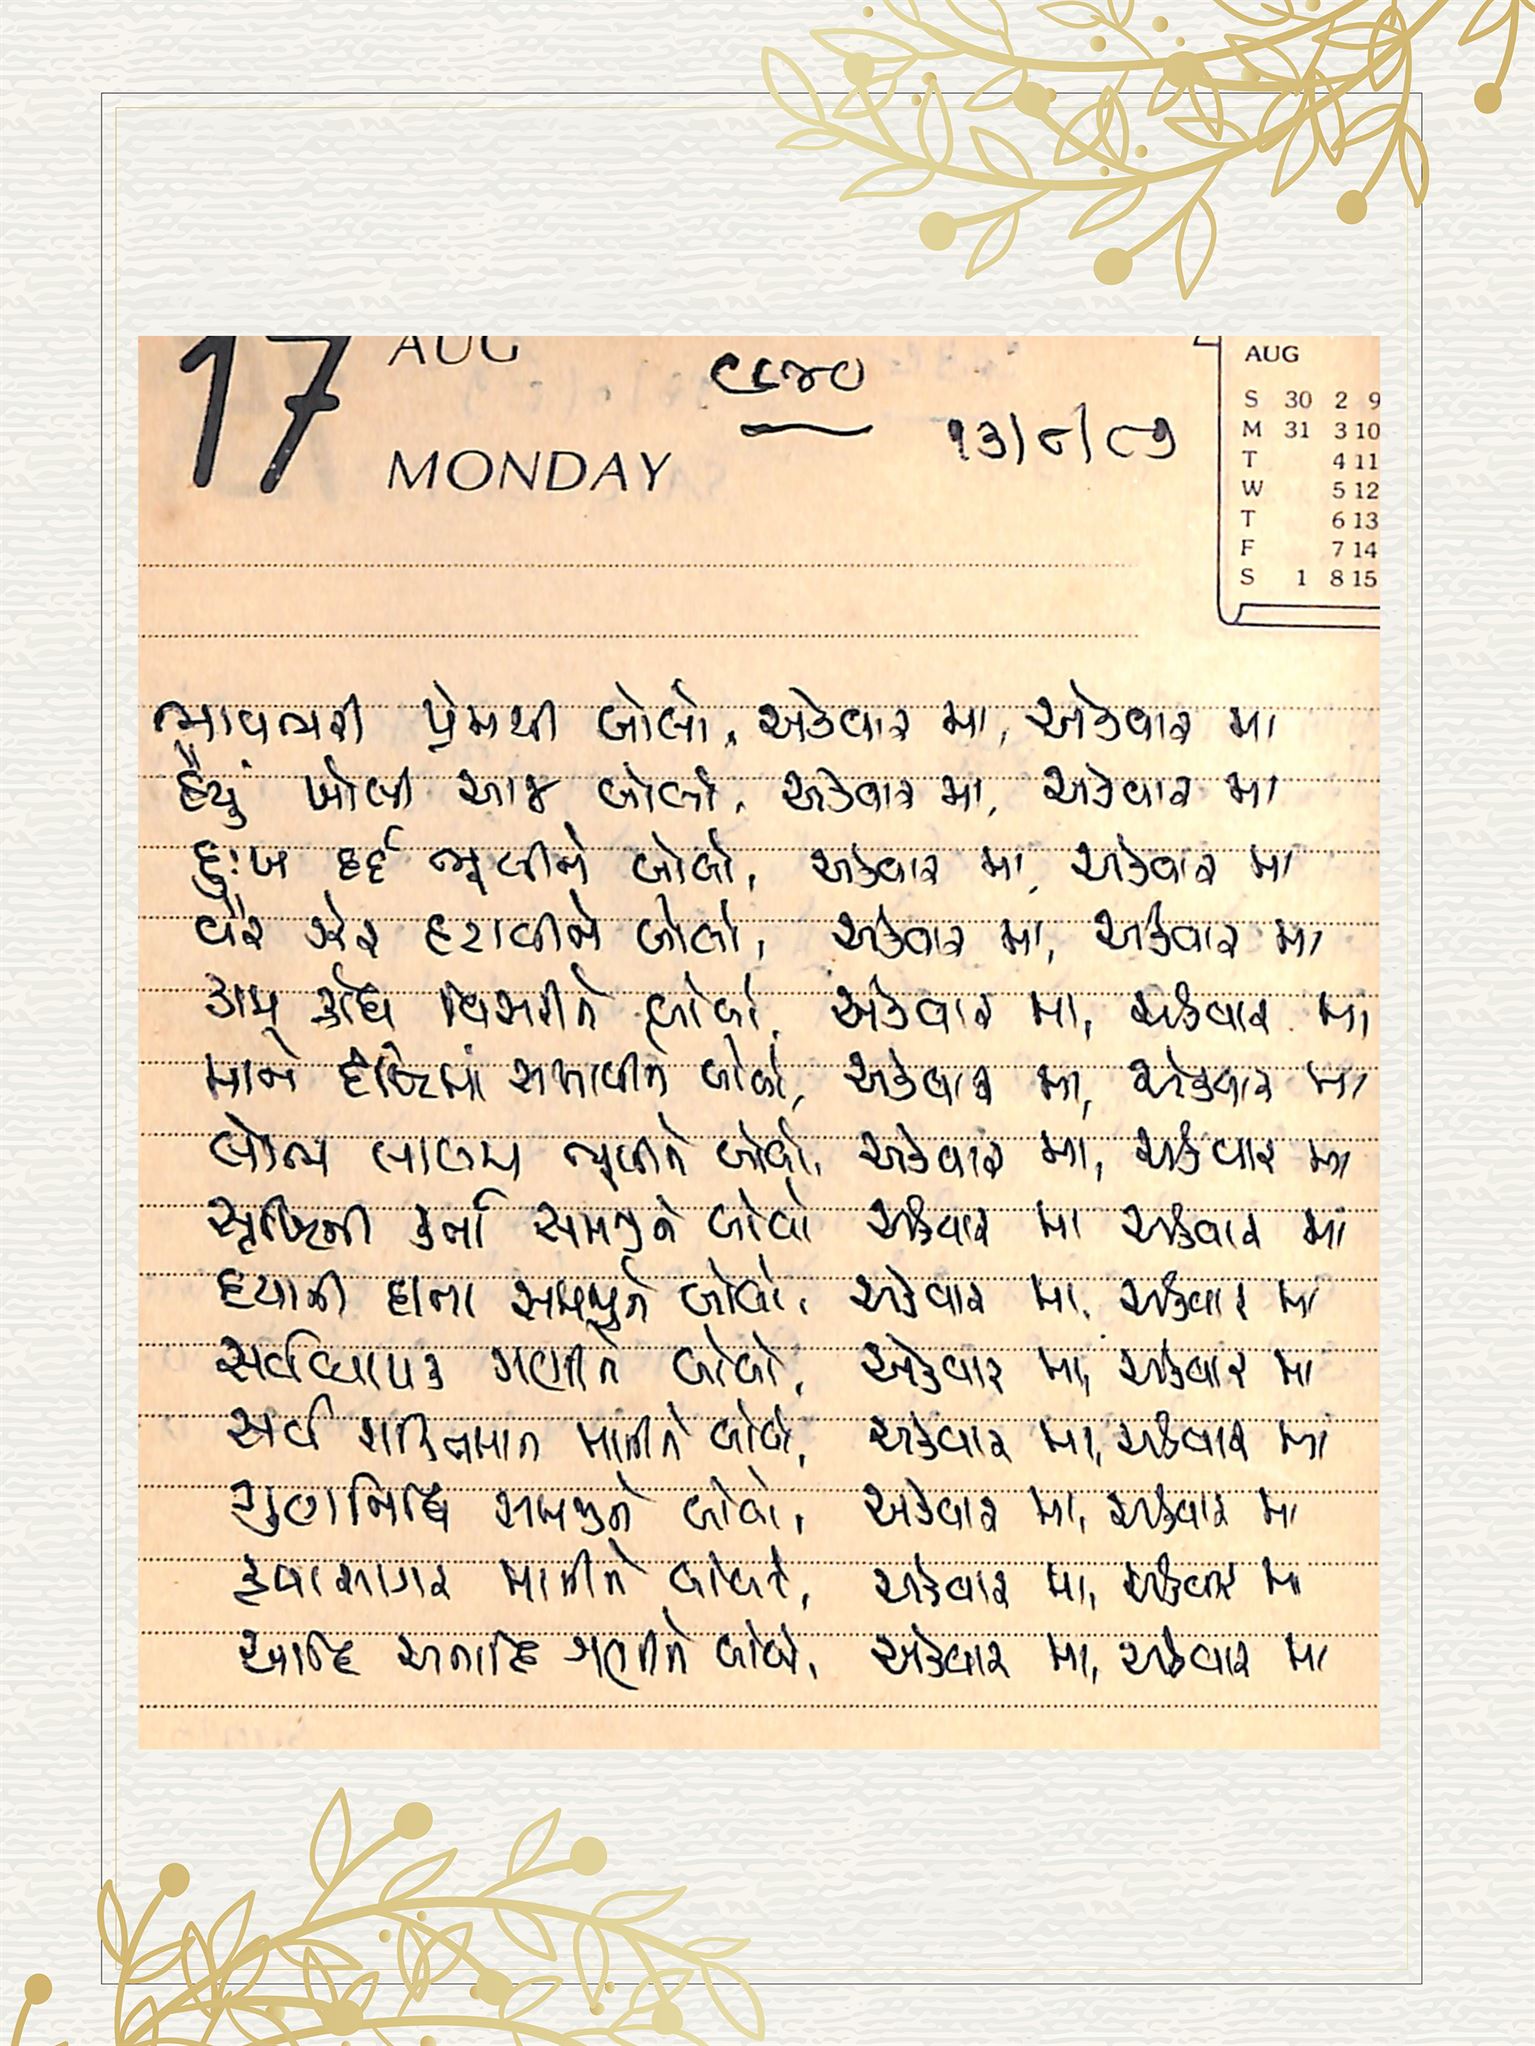 17 AUG
MONDAY
૯૯૪૦
૧૩/૮/૮૭
AUG
S 30 2 9
M 31 3 10
T 4 11
W 5 12
T 6 13
F 7 14
S 1 8 15
ભાવભરી પ્રેમથી બોલો, એકવાર મા, એકવાર મા
હૈયું ખોલી આજ બોલો, એકવાર મા, એકવાર મા
દુઃખ દર્દ ભૂલીને બોલો, એકવાર મા, એકવાર મા
વૈર ઝેર હટાવીને બોલો, એકવાર મા, એકવાર મા
કામ ક્રોધ વિસરીને બોલો, એકવાર મા, એકવાર મા
માને દૃષ્ટિમાં સમાવીને બોલો, એકવાર મા, એકવાર મા
લોભ લાલચ ભૂલીને બોલો, એકવાર મા, એકવાર મા
સૃષ્ટિની કર્તા સમજીને બોલો એકવાર મા એકવાર મા
દયાળી દાતા સમજીને બોલો, એકવાર મા, એકવાર મા
સર્વવ્યાપક ગણીને બોલો, એકવાર મા, એકવાર મા
સર્વ શક્તિમાન માનીને બોલો, એકવાર મા, એકવાર મા
ગુણનિધિ સમજીને બોલો, એકવાર મા, એકવાર મા
કૃપાસાગર માનીને બોલો, એકવાર મા, એકવાર મા
આદિ અનાદિ ગણીને બોલો, એકવાર મા, એકવાર મા